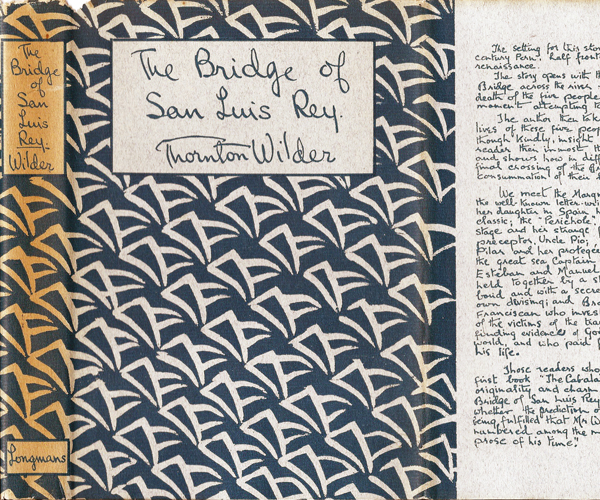 The
Bridge
of
San
Luis
Rey.
Wilder
Longmans
The Bridge of
San Luis Rey.
Thornton Wilder
The setting for this stor
century Peru. half front
renaissance.
The story opens with th
Bridge across the river
death of the five people
moment attempting to
The author then tak
lives of these five peop
though kindly, insight
reader their inmost th
and shows how in diff
final crossing of the Br
consummation of their
We meet the Marqu
the well-known letter-wri
her daughter in Spain h
classic; the "Perichole,"
stage and her strange
preceptor, Uncle Pio;
Pilar and her protegée
the great sea Captain
Esteban and Manuel
held together by a st
bond and with a secre
own devising; and Bro
Franciscan who inves
of the victims of the tra
finding evidences of Go
world, and who paid f
his life.
Those readers who
first book "The Cabala
originality and charm
Bridge of San Luis Rey
whether the prediction o
being fulfilled that Mr W
numbered among the m
prose of his time.